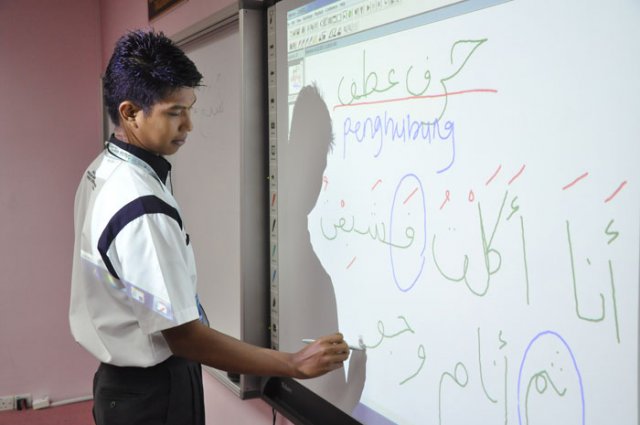 حرف عطف
penghubung
أَنَا أَكَلْتُ فَشَبِعْتُ
ثم أنام و